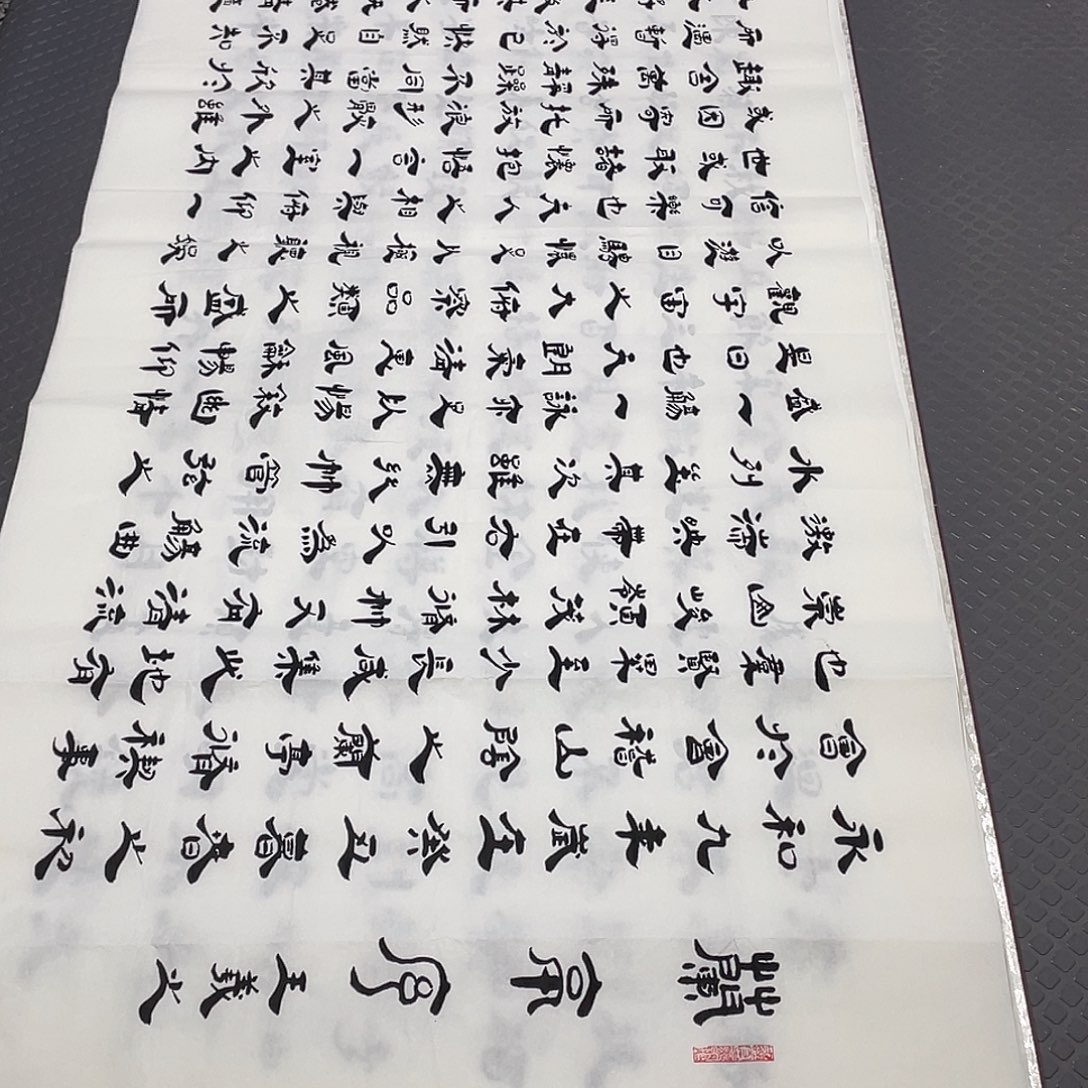 蘭亭序 王羲之
永和九年歲在癸丑暮春之初
會於會稽山陰之蘭亭脩禊事
也羣賢畢至少長咸集此地有
崇山峻領茂林脩竹又有清流
激湍映帶左右引以為流觴曲
水列坐其次雖無絲竹管弦之
盛一觴一詠亦足以暢敘幽情
是日也天朗氣清惠風龢暢仰
觀宇宙之大俯察品類之盛所
以遊目騁懷足以極視聽之娛
信可樂也夫人之相與俯仰一
世或取諸懷抱悟言一室之內
或因寄所託放浪形骸之外雖
趣舍萬殊靜躁不同當其欣於
所遇暫得於己快然自足不知